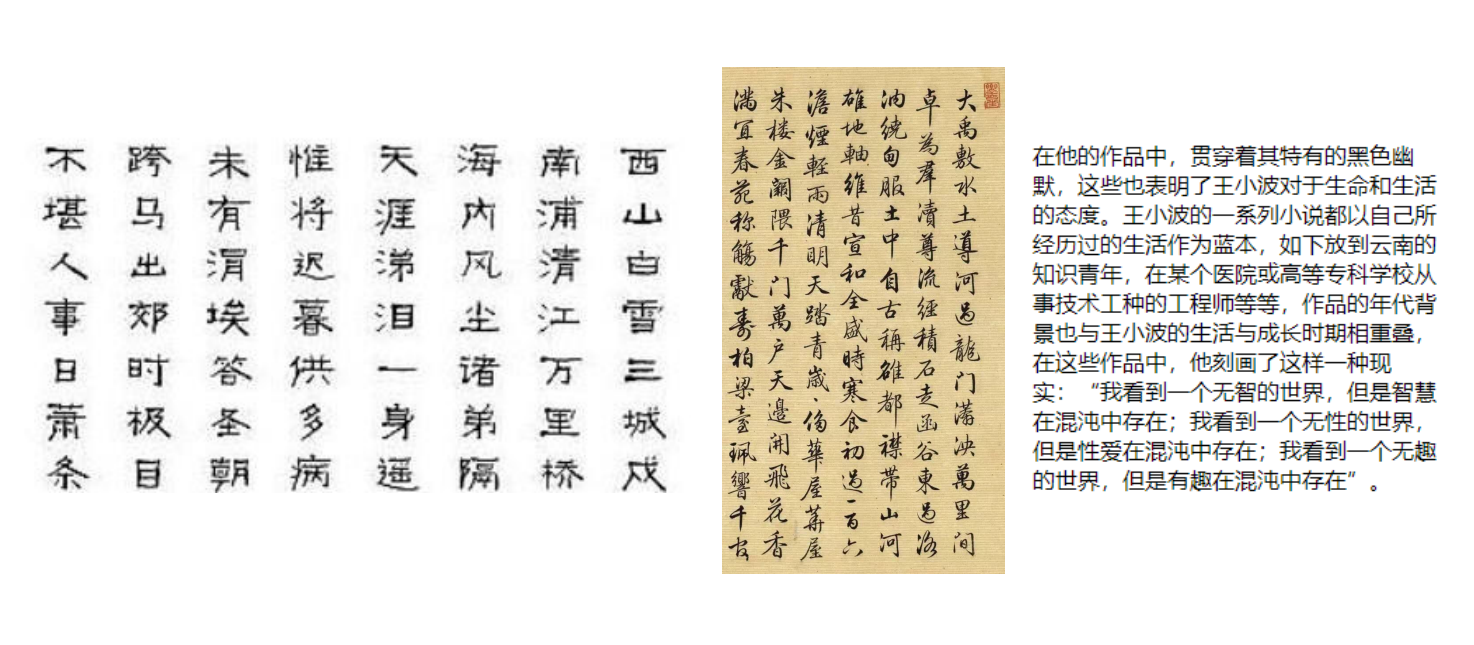 西山白雪三城戍
南浦清江万里桥
海内风尘诸弟隔
天涯涕泪一身遥
惟将迟暮供多病
未有涓埃答圣朝
跨马出郊时极目
不堪人事日萧条
大禹敷水土導河過龍门泱萬里间
卓為羣瀆尊流經積石走函谷東過洛
汭繞甸服土中自古稱雒都襟帶山河
雄地軸維昔宣和全盛時寒食初過一百六
澹煙輕雨清明天踏青歲侈華屋
朱楼金闕隈千门萬户天邊開飛花香
满宜春苑称觴獻壽柏梁臺珮響千官
在他的作品中，贯穿着其特有的黑色幽
默，这些也表明了王小波对于生命和生活
的态度。王小波的一系列小说都以自己所
经历过的生活作为蓝本，如下放到云南的
知识青年，在某个医院或高等专科学校从
事技术工种的工程师等等，作品的年代背
景也与王小波的生活与成长时期相重叠，
在这些作品中，他刻画了这样一种现
实：“我看到一个无智的世界，但是智慧
在混沌中存在；我看到一个无性的世界，
但是性爱在混沌中存在；我看到一个无趣
的世界，但是有趣在混沌中存在”。